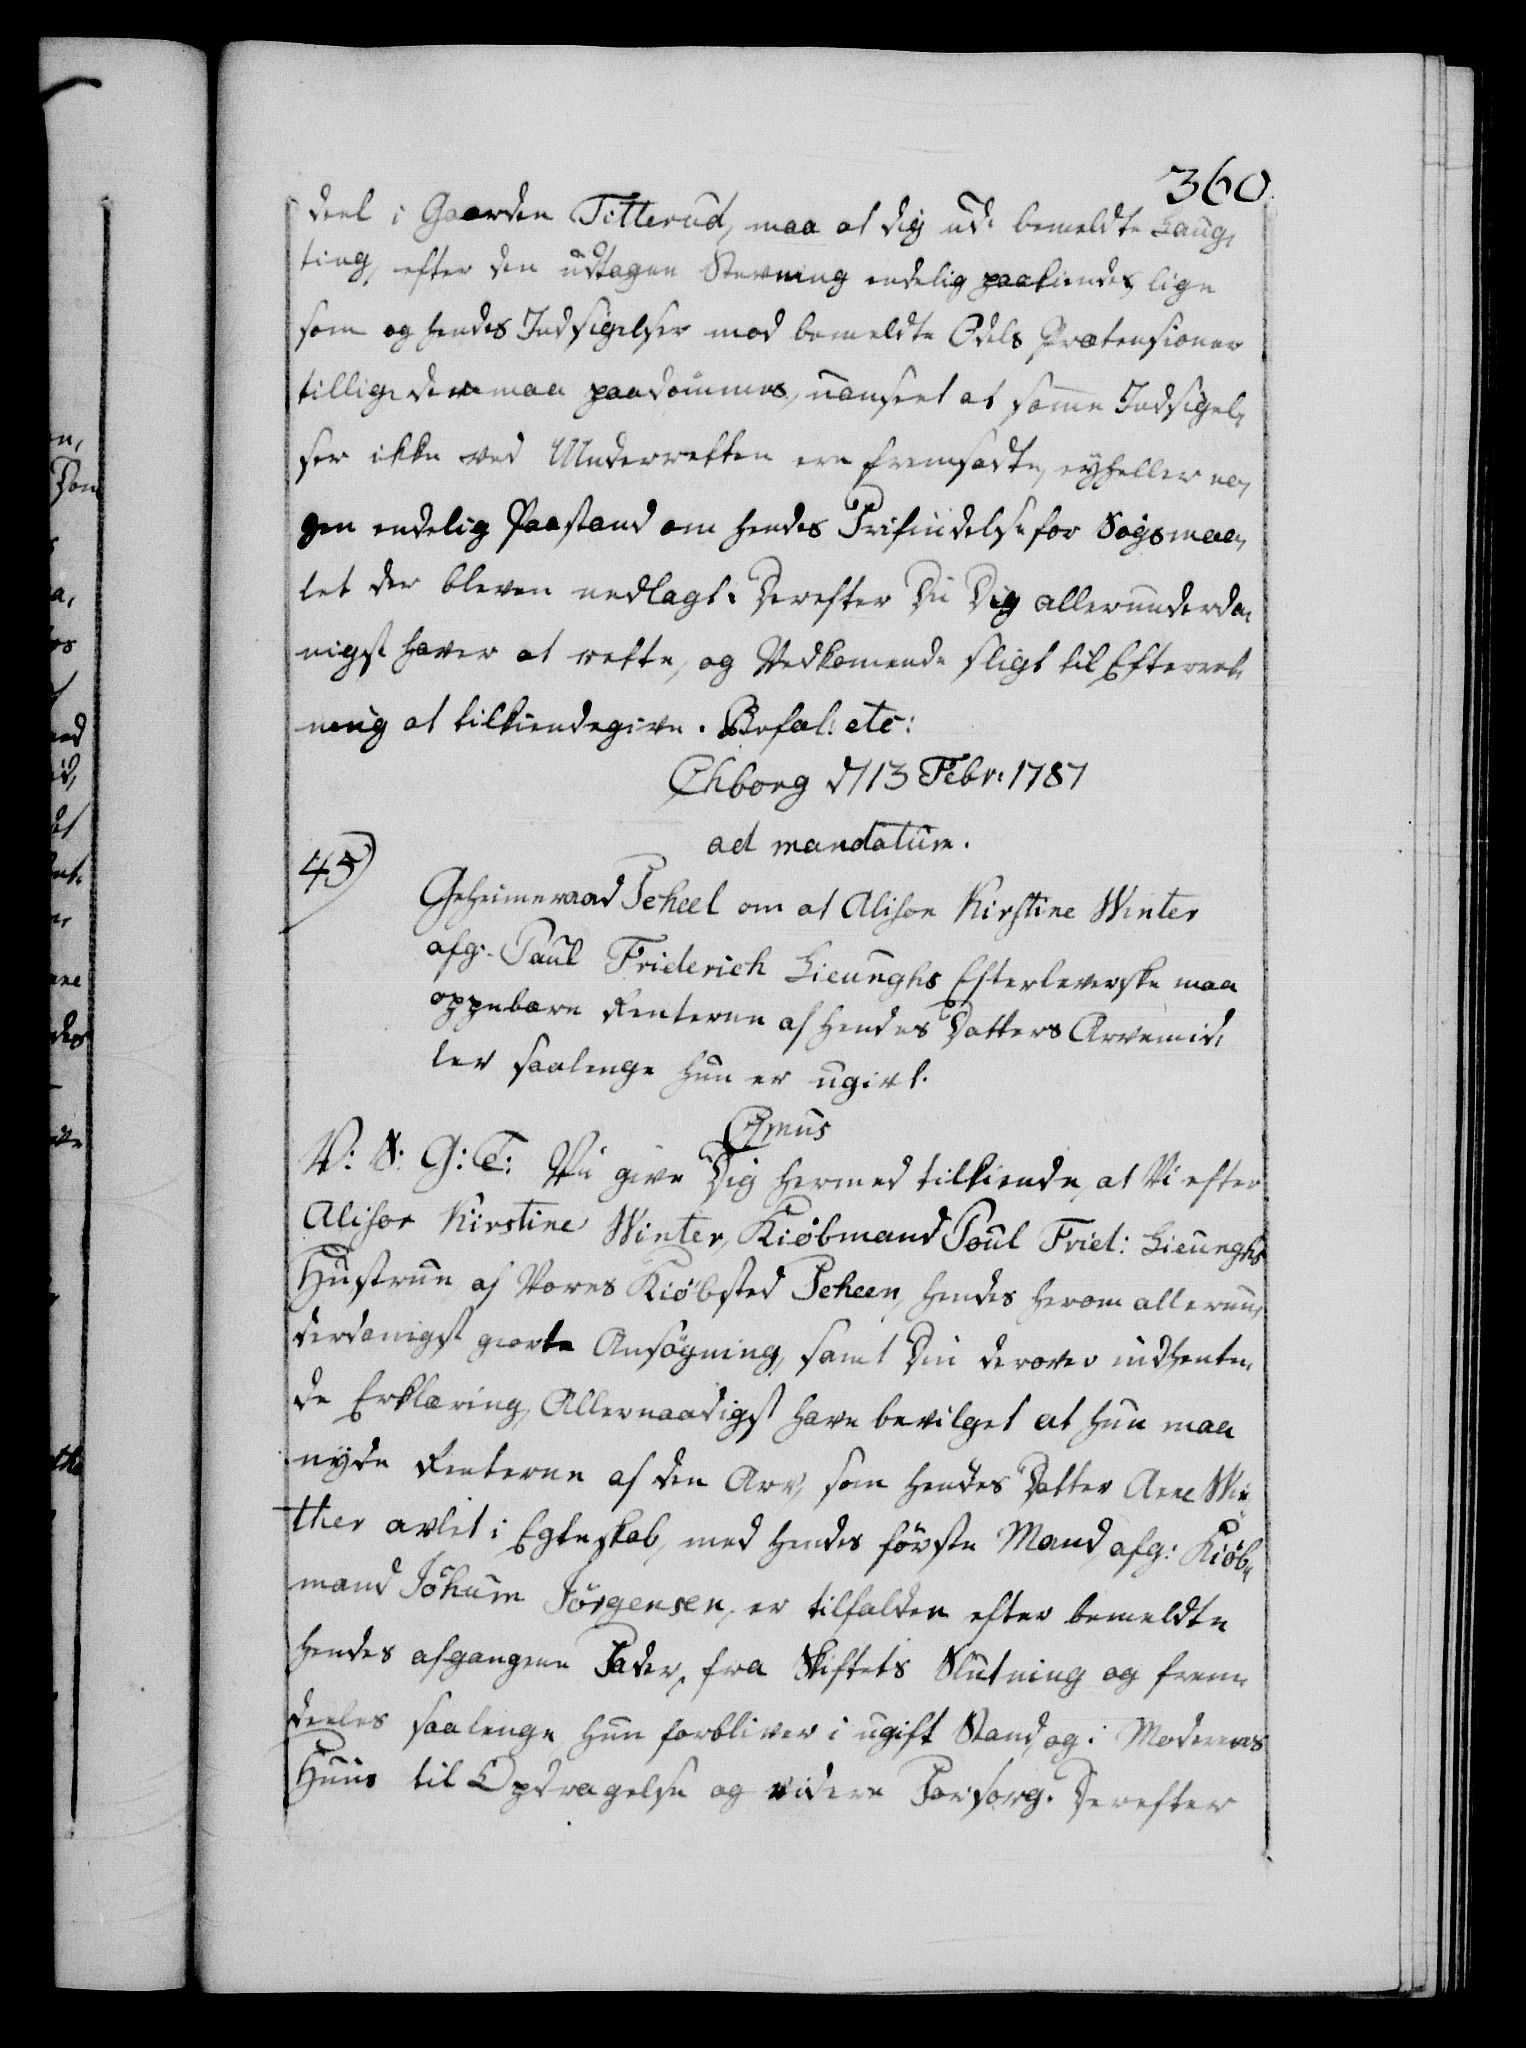 360.
deel i Gaarden Titterud, maa at dig udi bemeldte Laug,
ting, efter den udtagne Stevning endelig paakiendes, lige
som og hendes Indsigelser mod bemeldte Odels Prætensioner
tillige der maa paadømmes, uanseet at samme Indsigel,
ser ikke ved Underretten ere fremsadte, eyheller no,
gen endelig Paastand om hendes Frifindelse for Søgsmaa,
let der bleven nedlagt. Derefter Du Dig allerunderda,
nigst haver at rette, og Vedkomende sligt til Efterret,
ning at tilkiendegive. Befal: etc:
Chborg d 13 Febr: 1787
ad mandatum.
45)
Geheimeraad Scheel om at Alison Kirstine Winter
afg: Paul Friderich Lieunghs Efterleverske maa
oppebære Renterne af hendes Datters Arvemid,
ler saalenge hun er ugivt.
C7mus
V: S: G: T: Vii give Dig hermed tilkiende, at Vi efter
Alisor Kirstine Winter, Kiøbmand Poul Frid: Lieunghs
Hustrue af Vores Kiøbsted Scheen, hendes herom allerun,
derdanigst giorte Ansøgning, samt Din derover indhente,
de Erklæring, Allernaadigst have bevilget at hun maa
nyde Renterne af den Arv, som hendes Datter Ane Win
ther avlet i Egteskab, med hendes første Mand, afg: Kiøb,
mand Jøhum Jørgensen, er tilfalden efter bemeldte
hendes afgangene Fader, fra Skiftets Slutning og frem,
deeles saalenge hun forbliver i ugift Stand, og i Moderens
Huus til Opdragelse og videre Forsorg. Derefter